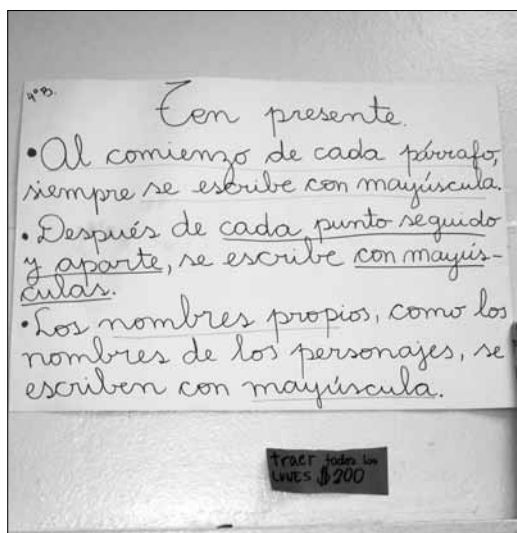 4°B.
Ten presente.
• Al comienzo de cada párrafo,
siempre se escribe con mayúscula.
• Después de cada punto seguido
y aparte, se escribe con mayús-
culas.
• Los nombres propios, como los
nombres de los personajes, se
escriben con mayúscula.
traer todos los
LUNES $200